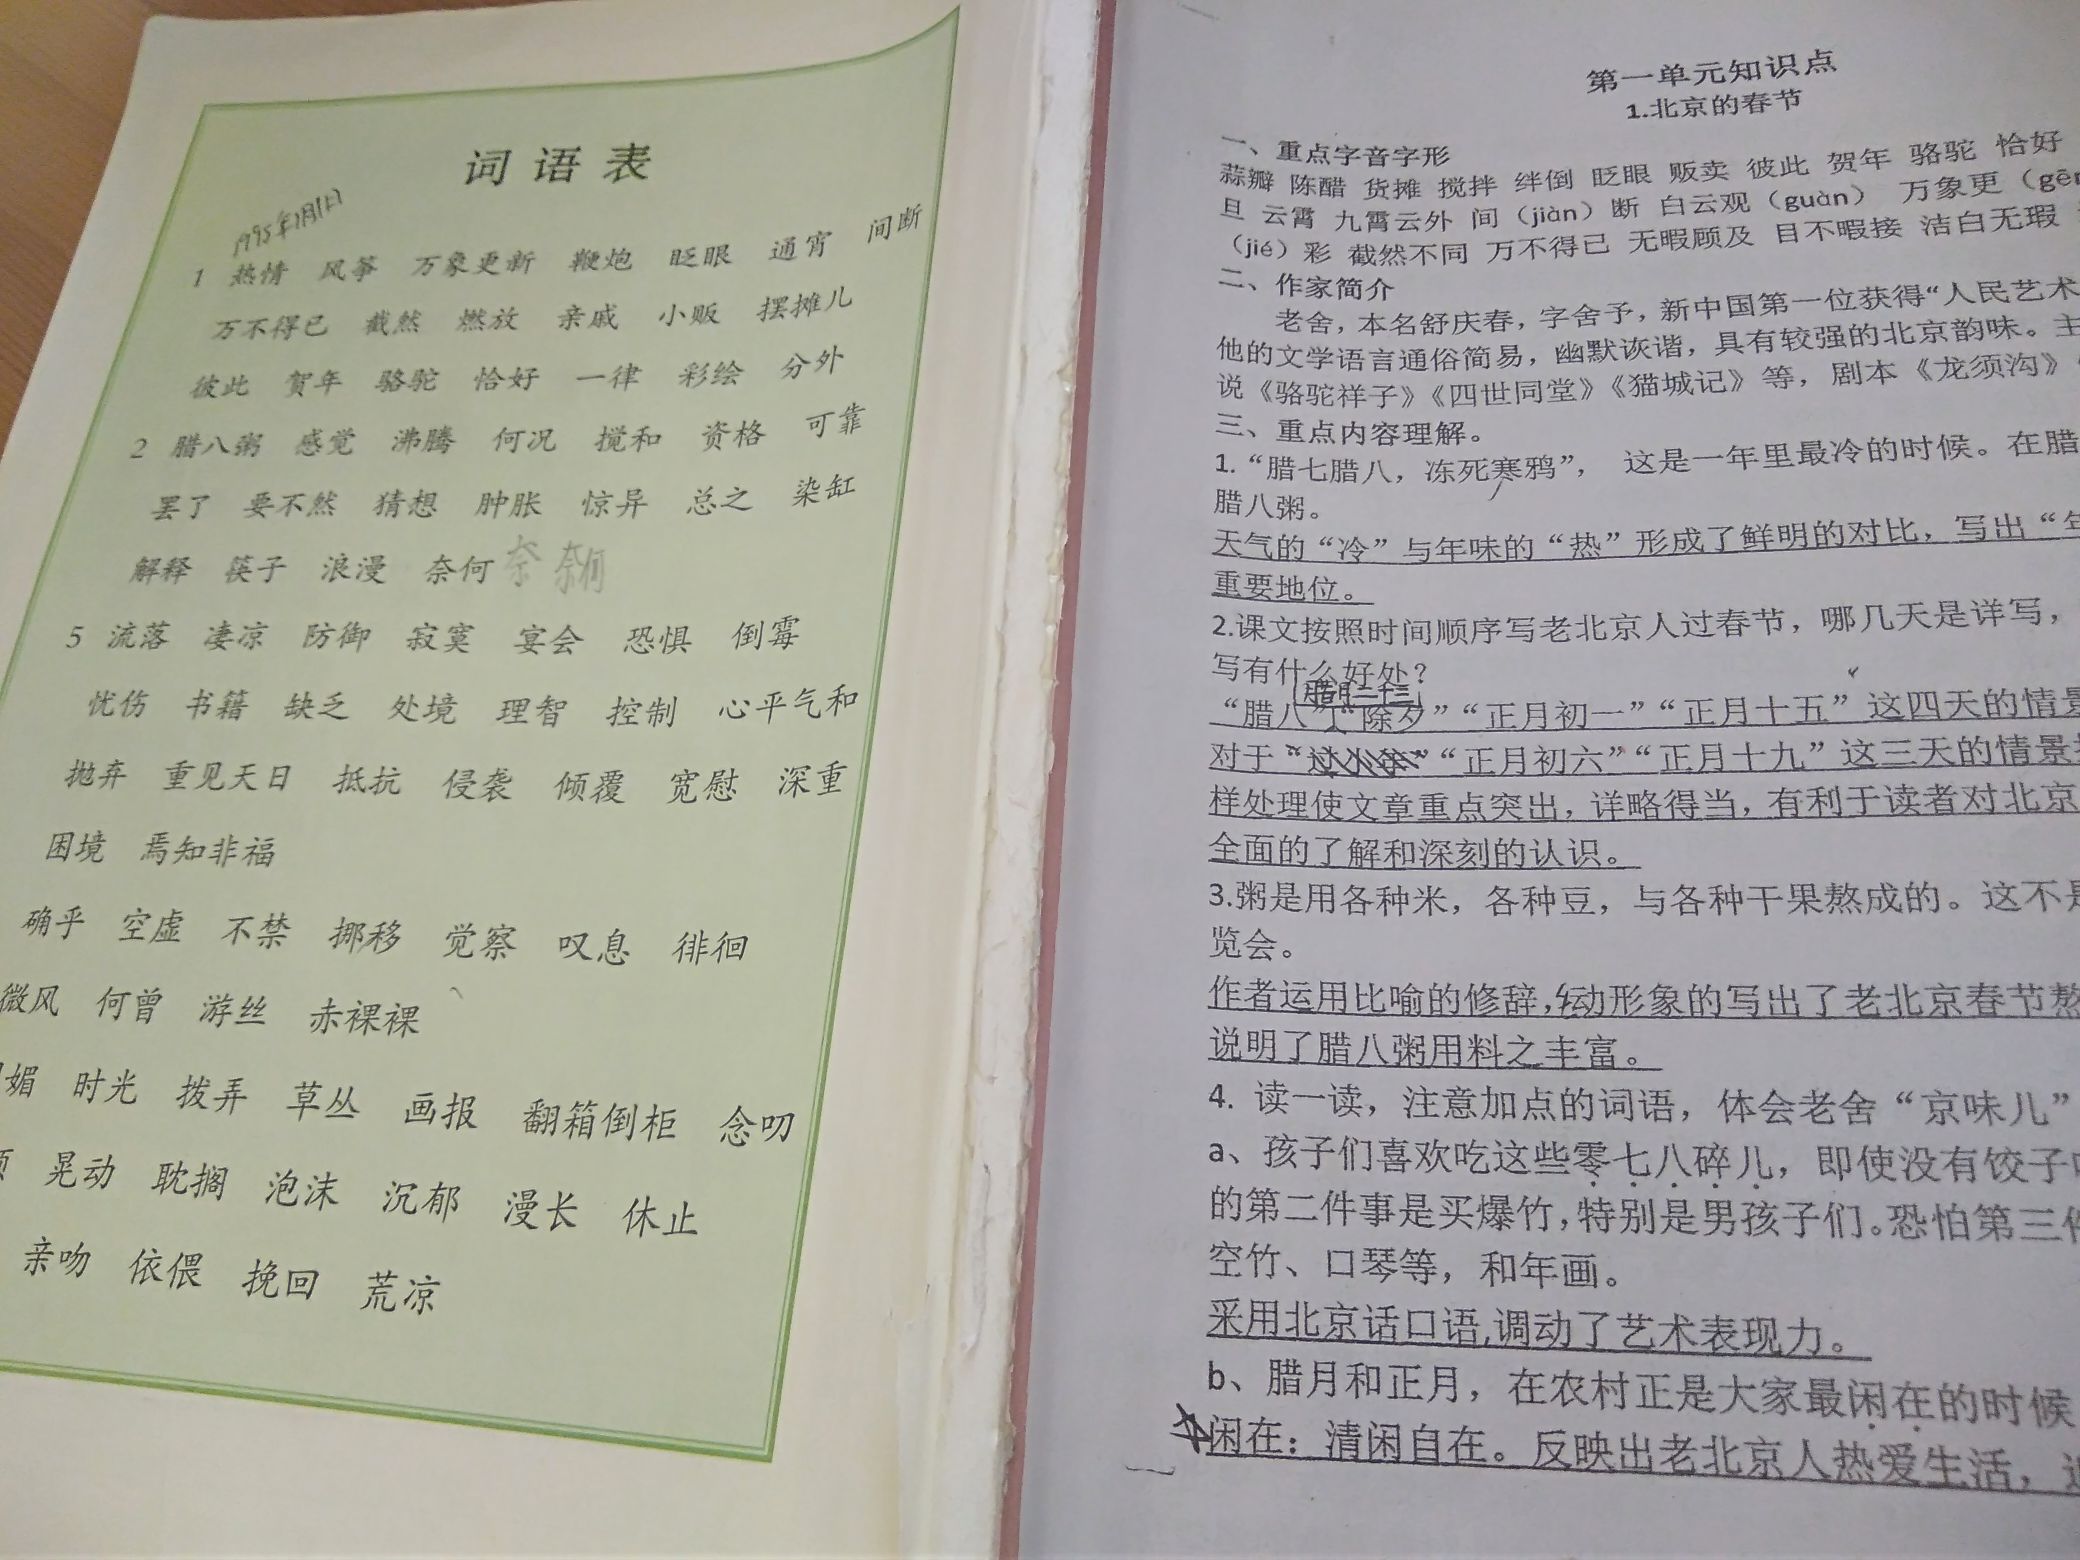 词语表
1995年1月1日
1 热情 风筝 万象更新 鞭炮 眨眼 通宵 间断
万不得已 截然 燃放 亲戚 小贩 摆摊儿
彼此 贺年 骆驼 恰好 一律 彩绘 分外
2 腊八粥 感觉 沸腾 何况 搅和 资格 可靠
罢了 要不然 猜想 肿胀 惊异 总之 染缸
解释 筷子 浪漫 奈何 奈 奈何
5 流落 凄凉 防御 寂寞 宴会 恐惧 倒霉
忧伤 书籍 缺乏 处境 理智 控制 心平气和
抛弃 重见天日 抵抗 侵袭 倾覆 宽慰 深重
困境 焉知非福
确乎 空虚 不禁 挪移 觉察 叹息 徘徊
微风 何曾 游丝 赤裸裸
媚 时光 拨弄 草丛 画报 翻箱倒柜 念叨
晃动 耽搁 泡沫 沉郁 漫长 休止
亲吻 依偎 挽回 荒凉
第一单元知识点
1.北京的春节
一、重点字音字形
蒜瓣 陈醋 货摊 搅拌 绊倒 眨眼 贩卖 彼此 贺年 骆驼 恰好
旦 云霄 九霄云外 间（jiàn）断 白云观（guàn） 万象更（gēn
（jié）彩 截然不同 万不得已 无暇顾及 目不暇接 洁白无瑕
二、作家简介
老舍，本名舒庆春，字舍予，新中国第一位获得“人民艺术
他的文学语言通俗简易，幽默诙谐，具有较强的北京韵味。主
说《骆驼祥子》《四世同堂》《猫城记》等，剧本《龙须沟》
三、重点内容理解。
1.“腊七腊八，冻死寒鸦”， 这是一年里最冷的时候。在腊
腊八粥。
天气的“冷”与年味的“热”形成了鲜明的对比，写出“年
重要地位。
2.课文按照时间顺序写老北京人过春节，哪几天是详写，
写有什么好处？
腊月二十三
“腊八”“除夕”“正月初一”“正月十五”这四天的情景
对于“过小年”“正月初六”“正月十九”这三天的情景
样处理使文章重点突出，详略得当，有利于读者对北京
全面的了解和深刻的认识。
3.粥是用各种米，各种豆，与各种干果熬成的。这不是
览会。
作者运用比喻的修辞，生动形象的写出了老北京春节熬
说明了腊八粥用料之丰富。
4. 读一读，注意加点的词语，体会老舍“京味儿”
a、孩子们喜欢吃这些零七八碎儿，即使没有饺子
的第二件事是买爆竹，特别是男孩子们。恐怕第三件
空竹、口琴等，和年画。
采用北京话口语，调动了艺术表现力。
b、腊月和正月，在农村正是大家最闲在的时候
闲在：清闲自在。反映出老北京人热爱生活，